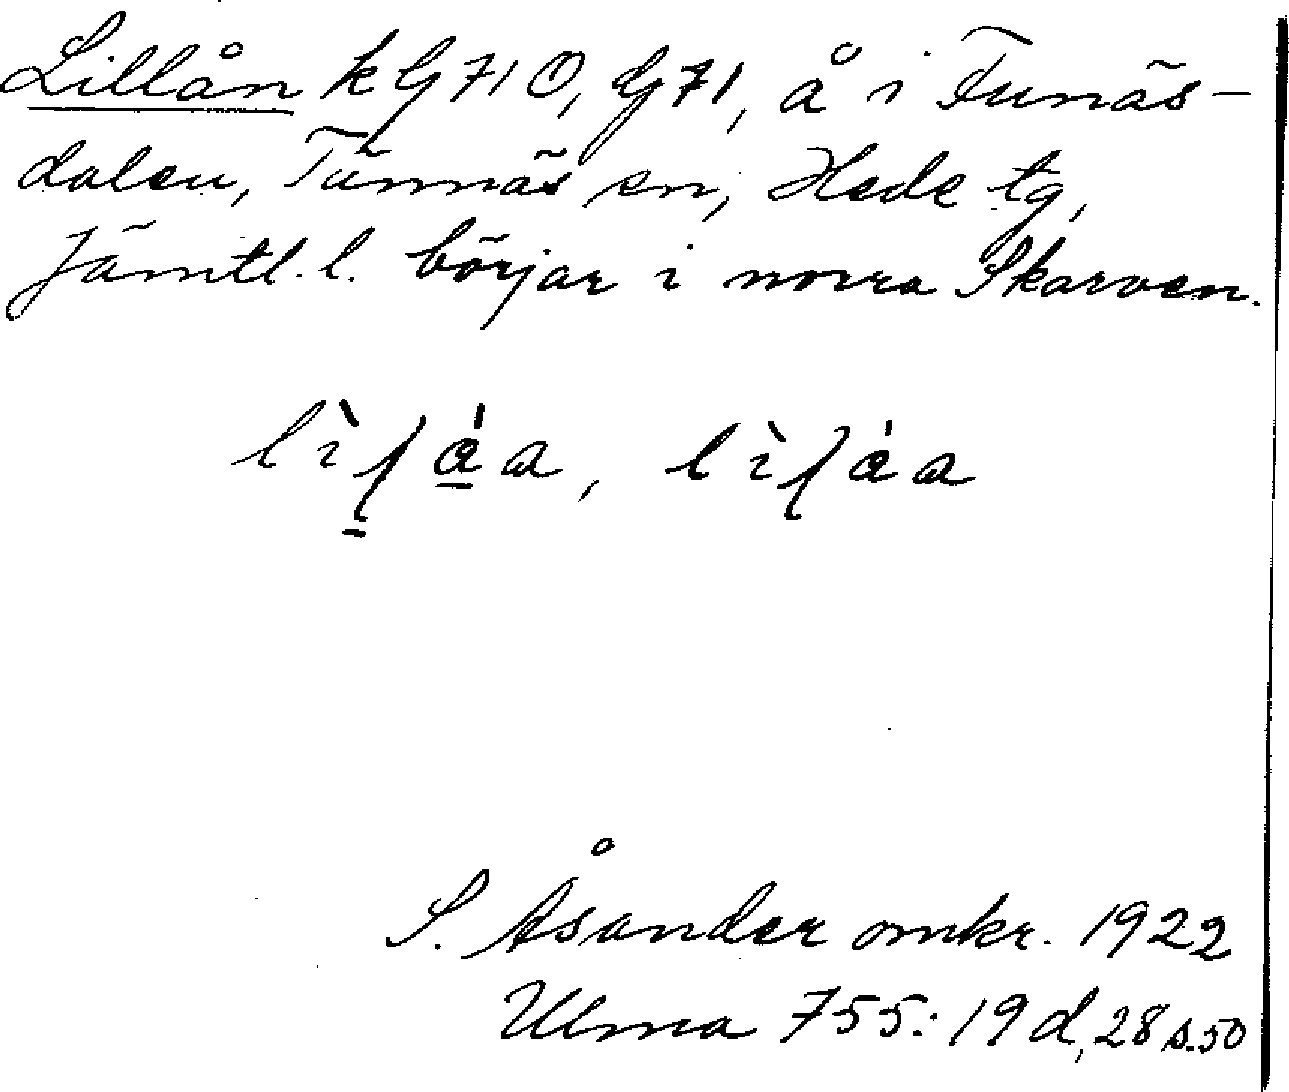 Lillån k G710, G71, å i Funäs-
dalen, Tännäs sn, Hede tg,
Jämtl. l. börjar i norra Skarven.
S. Åsander omkr. 1922
Ulma 755: 19 d, 28 s. 50